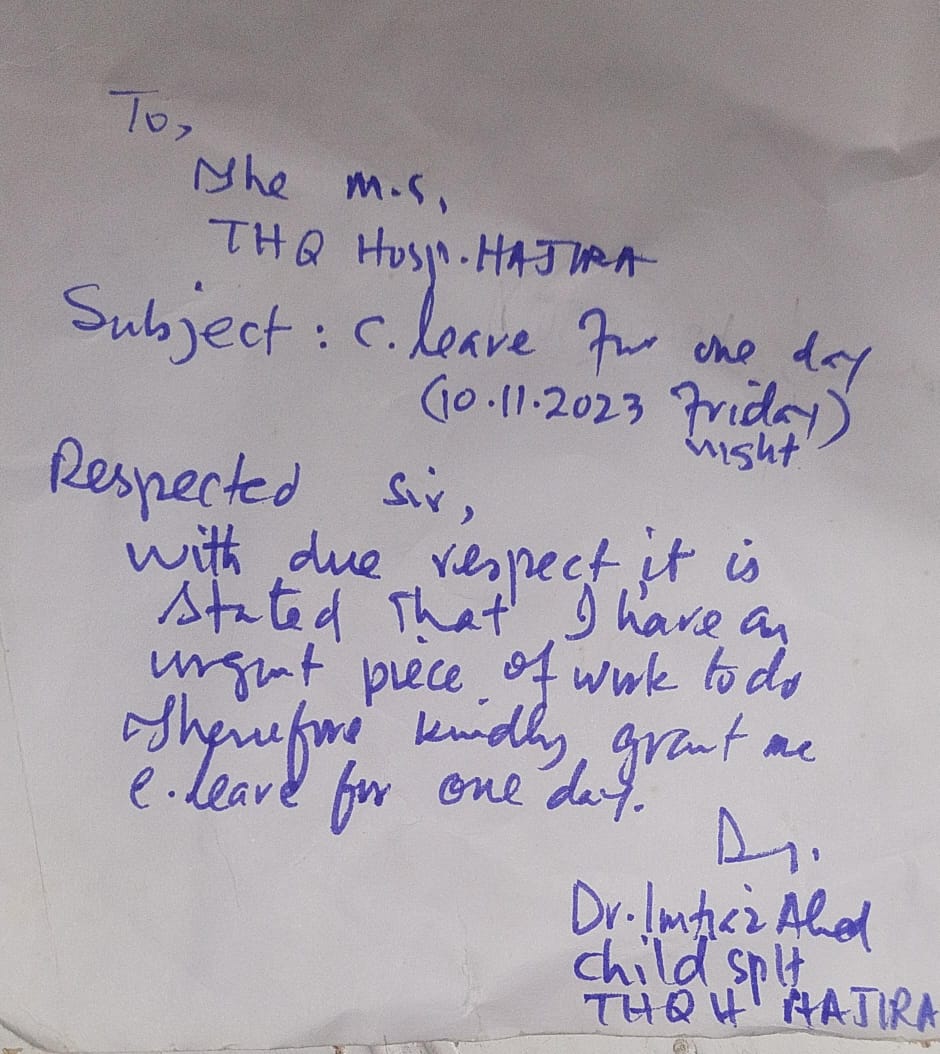 To,
The M.S,
THQ Hosp. HAJIRA
Subject : C. leave for one day
(10.11.2023 Friday)
night
Respected Sir,
with due respect it is
stated that I have an
urgent piece of work to do
Therefore kindly grant me
C. leave for one day.
Dr. Imtiaz Ahed
child splt
THQ H HAJIRA